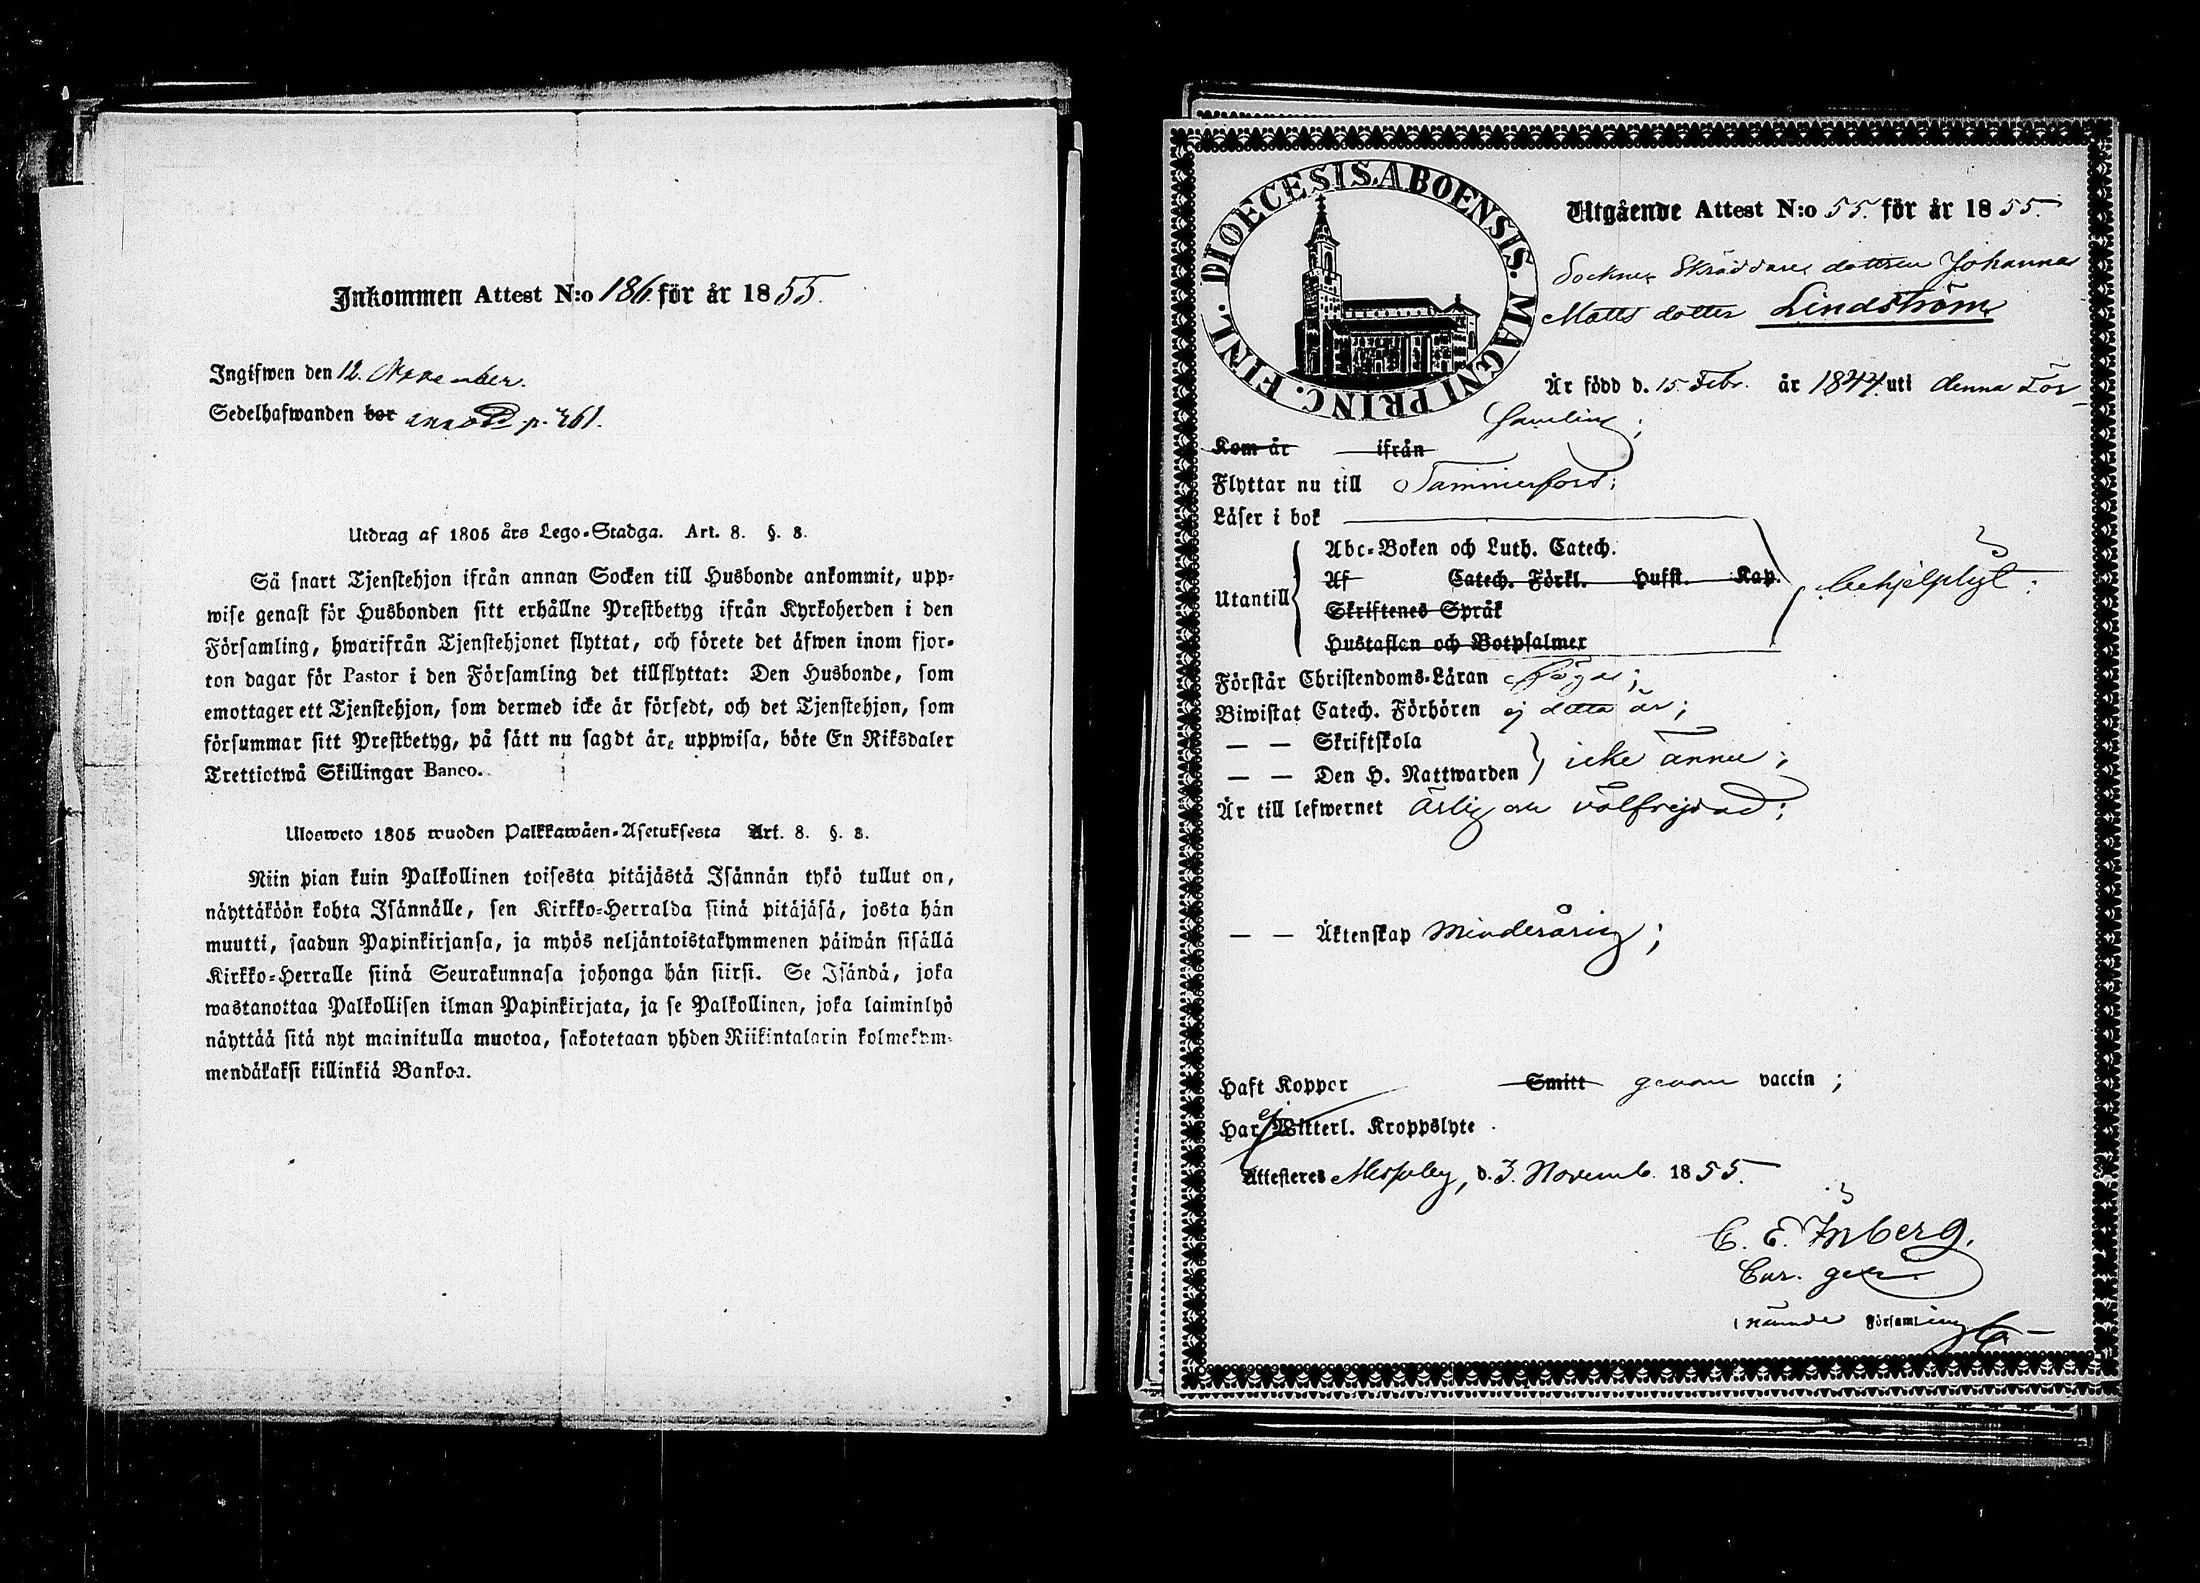 Inkommen Attest N:o 186 för år 1855.
Ingifwen den 12. November.
Sedelhafwanden bor p. 261.
Utdrag af 1805 års Lego-Stadga. Art. 8. §. 8.
Så snart Tjenstehjon ifrån annan Socken till Husbonde ankommit, upp-
wise genast för Husbonden sitt erhållne Prestbetyg ifrån Kyrkoherden i den
Församling, hwarifrån Tjenstehjonet flyttat, och förete det äfwen inom fjor-
ton dagar för Pastor i den Församling det tillflyttat: Den Husbonde, som
emottager ett Tjenstehjon, som dermed icke är försedt, och det Tjenstehjon, som
försummar sitt Prestbetyg, på sätt nu sagdt är, uppwisa, böte En Riksdaler
Trettiotwå Skillingar Banco.
Ulosweto 1805 wuoden Palkkawäen-Asetuksesta Art. 8. §. 8.
Niin pian kuin Palkollinen toisesta pitäjästä Isännän tykö tullut on,
näyttäköön kohta Isännälle, sen Kirkko-Herralda siinä pitäjäsä, josta hän
muutti, saadun Papinkirjansa, ja myös neljäntoistakymmenen päiwän sisällä
Kirkko-Herralle siinä Seurakunnasa johonga hän siirsi. Se Isändä, joka
wastanottaa Palkollisen ilman Papinkirjata, ja se Palkollinen, joka laiminlyö
näyttää sitä nyt mainitulla muotoa, sakotetaan yhden Riikintalarin kolmekym-
mendäkaksi killinkiä Bankoa.
DIOECESIS. ABOENSIS. MAGNI PRINC. FINL.
Utgående Attest N:o 55. för år 1855.
Sockne Skräddare dottren Johanna
Matts dotter Lindström
Är född d. 15 Febr. år 1844. uti denna För-
samling;
Kom år ifrån
Flyttar nu till Tammerfors;
Läser i bok
Abc-Boken och Luth. Catech.
Utantill Af Catech. Förkl. Hufst. Kap. behjelpligt.
Skriftenes Språk
Hustaflan och Botpsalmer
Förstår Christendoms-Läran någo;
Biwistat Catech. Förhören ej detta år;
— — Skriftskola
— — Den H. Nattwarden icke ännu;
Är till lefwernet ärlig och välfrejdad;
— — Äktenskap Minderårig;
Haft Koppor Smitt genom vaccin;
Har ej Witterl. Kroppslyte.
Attesteres Messuby, d. 3. Novemb. 1855.
C. E. Inberg.
nämnde Församling